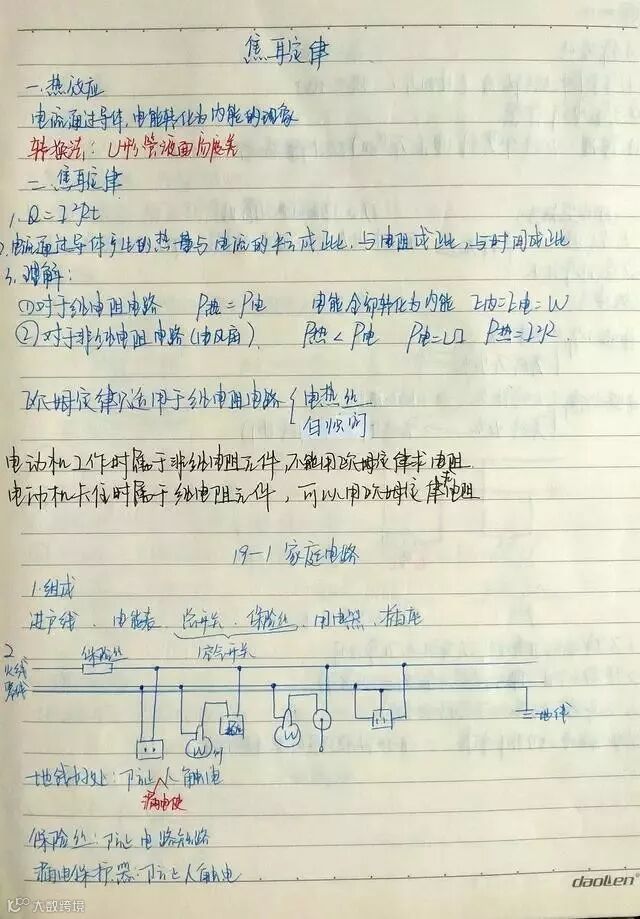 焦耳定律
一.热效应
电流通过导体,电能转化为内能的现象
转换法：U形管液面高度差
二.焦耳定律
1.Q=I²Rt
2.电流通过导体产生的热量与电流的平方成正比,与电阻成正比,与时间成正比
3.理解：
①对于纯电阻电路 P热=P电 电能全部转化为内能 E内=E电=W
②对于非纯电阻电路(电风扇) P热<P电 P电=UI P热=I²R
欧姆定律只适用于纯电阻电路{电热丝
白炽灯
电动机工作时属于非纯电阻元件,不能用欧姆定律求电阻
电动机卡住时属于纯电阻元件,可以用欧姆定律求电阻
19-1 家庭电路
1.组成
进户线、电能表、总开关、保险丝、用电器、插座
空气开关
2
火线 保险丝
零线
地线
M
地线好处：防止人触电
漏电使
保险丝：防止电路短路
漏电保护器：防止人触电
daolen
大数跨境